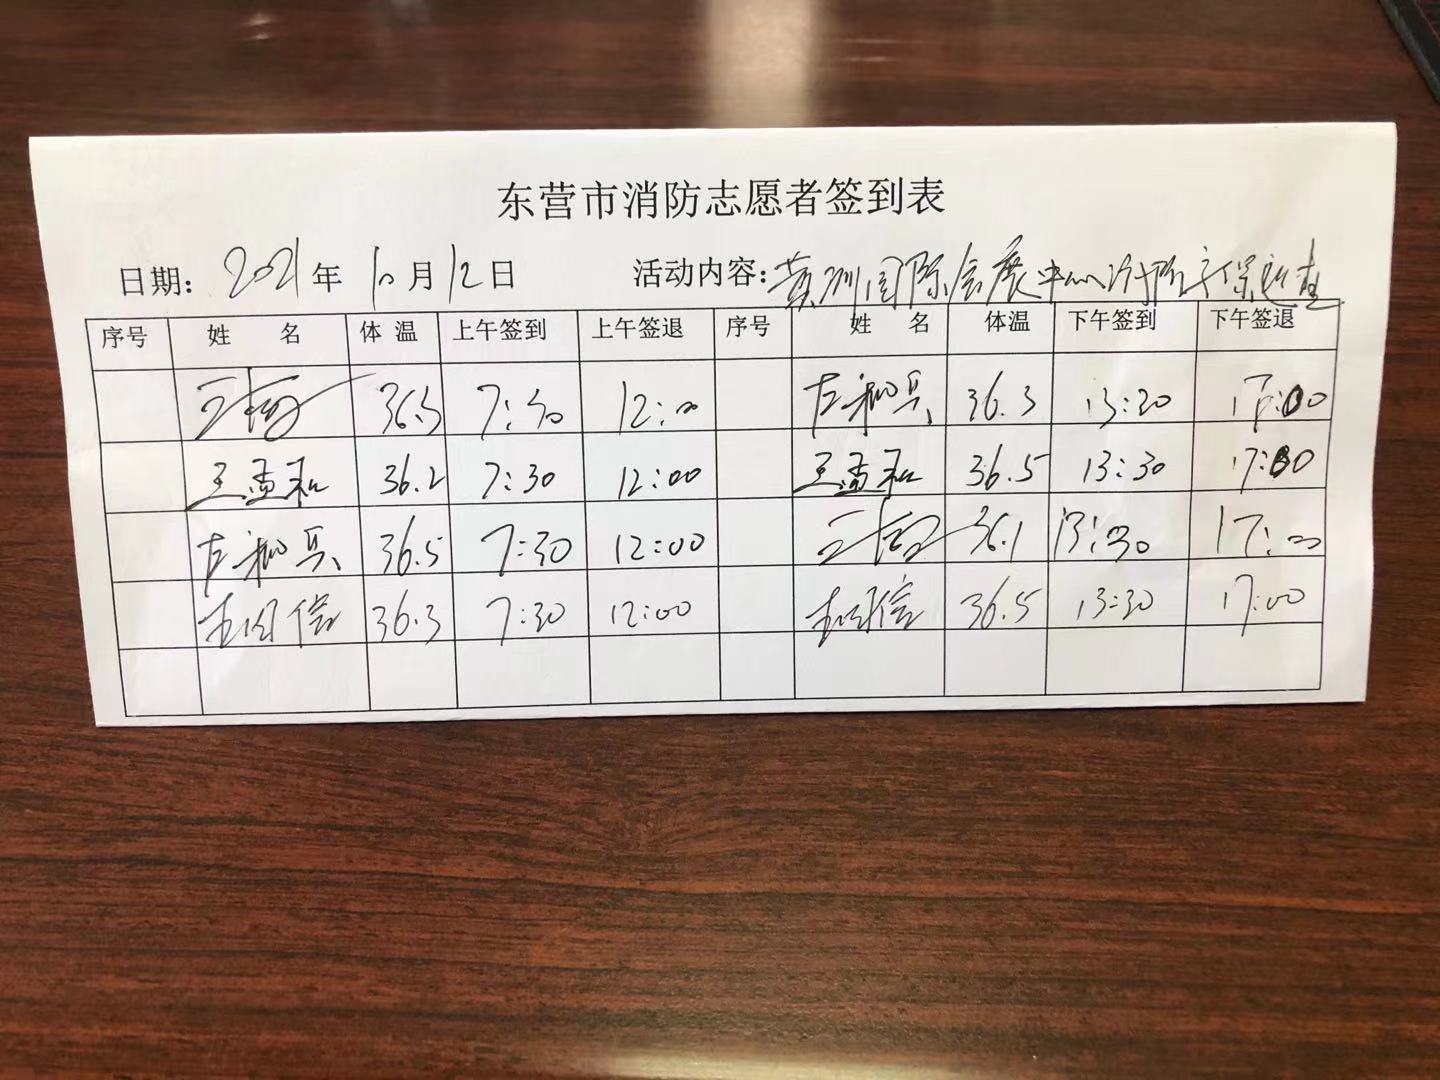 东营市消防志愿者签到表
日期: 2021 年 10 月 12 日 活动内容: 黄河国际会展中心消防安保巡查
序号 姓名 体温 上午签到 上午签退 序号 姓名 体温 下午签到 下午签退
36.5 7:30 12:00 36.3 13:30 17:00
王孟和 36.2 7:30 12:00 王孟和 36.5 13:30 17:00
36.5 7:30 12:00 36.1 13:30 17:00
36.3 7:30 12:00 36.5 13:30 17:00